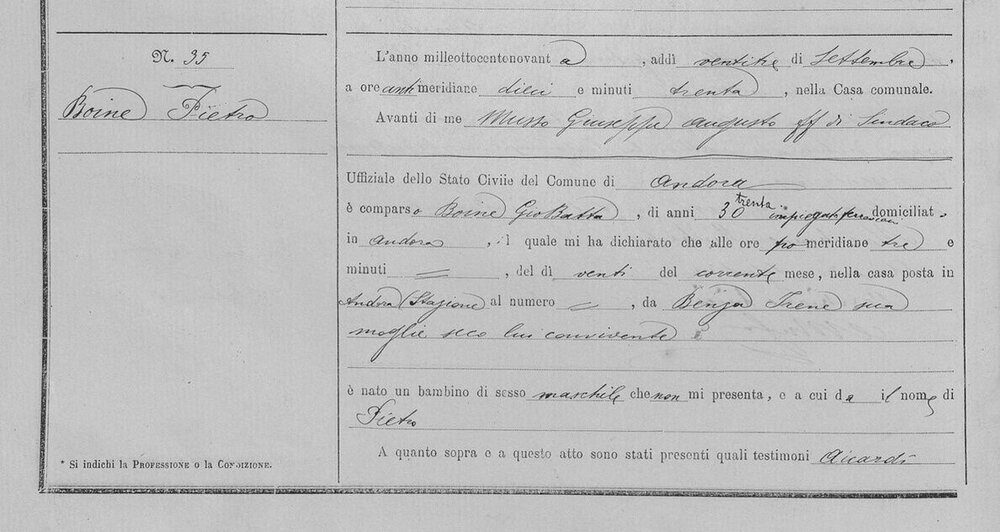 N. 35
Boine Pietro
* Si indichi la PROFESSIONE o la CONDIZIONE.
L'anno milleottocentonovanta, addì ventitre di Settembre,
a ore antimeridiane dieci e minuti trenta, nella Casa comunale.
Avanti di me Musso Giuseppe Augusto ff di Sindaco
Uffiziale dello Stato Civile del Comune di Andora
è comparso Boine GioBatta, di anni 30 trenta impiegato ferroviario domiciliato
in Andora, il quale mi ha dichiarato che alle ore pomeridiane tre e
minuti =, del dì venti del corrente mese, nella casa posta in
Andora (Stazione al numero =, da Benza Irene sua
moglie seco lui convivente
è nato un bambino di sesso maschile che non mi presenta, e a cui dà il nome di
Pietro
A quanto sopra e a questo atto sono stati presenti quali testimoni Aicardi